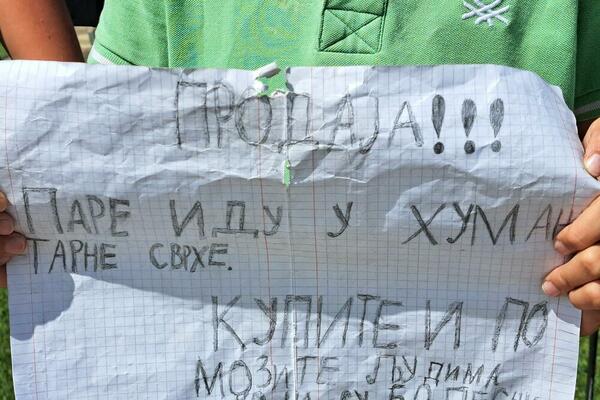 ПРОДАЈА!!!
ПАРЕ ИДУ У ХУМАН
ТАРНЕ СВРХЕ.
КУПИТЕ И ПО
МОЗИТЕ ЉУДИМА